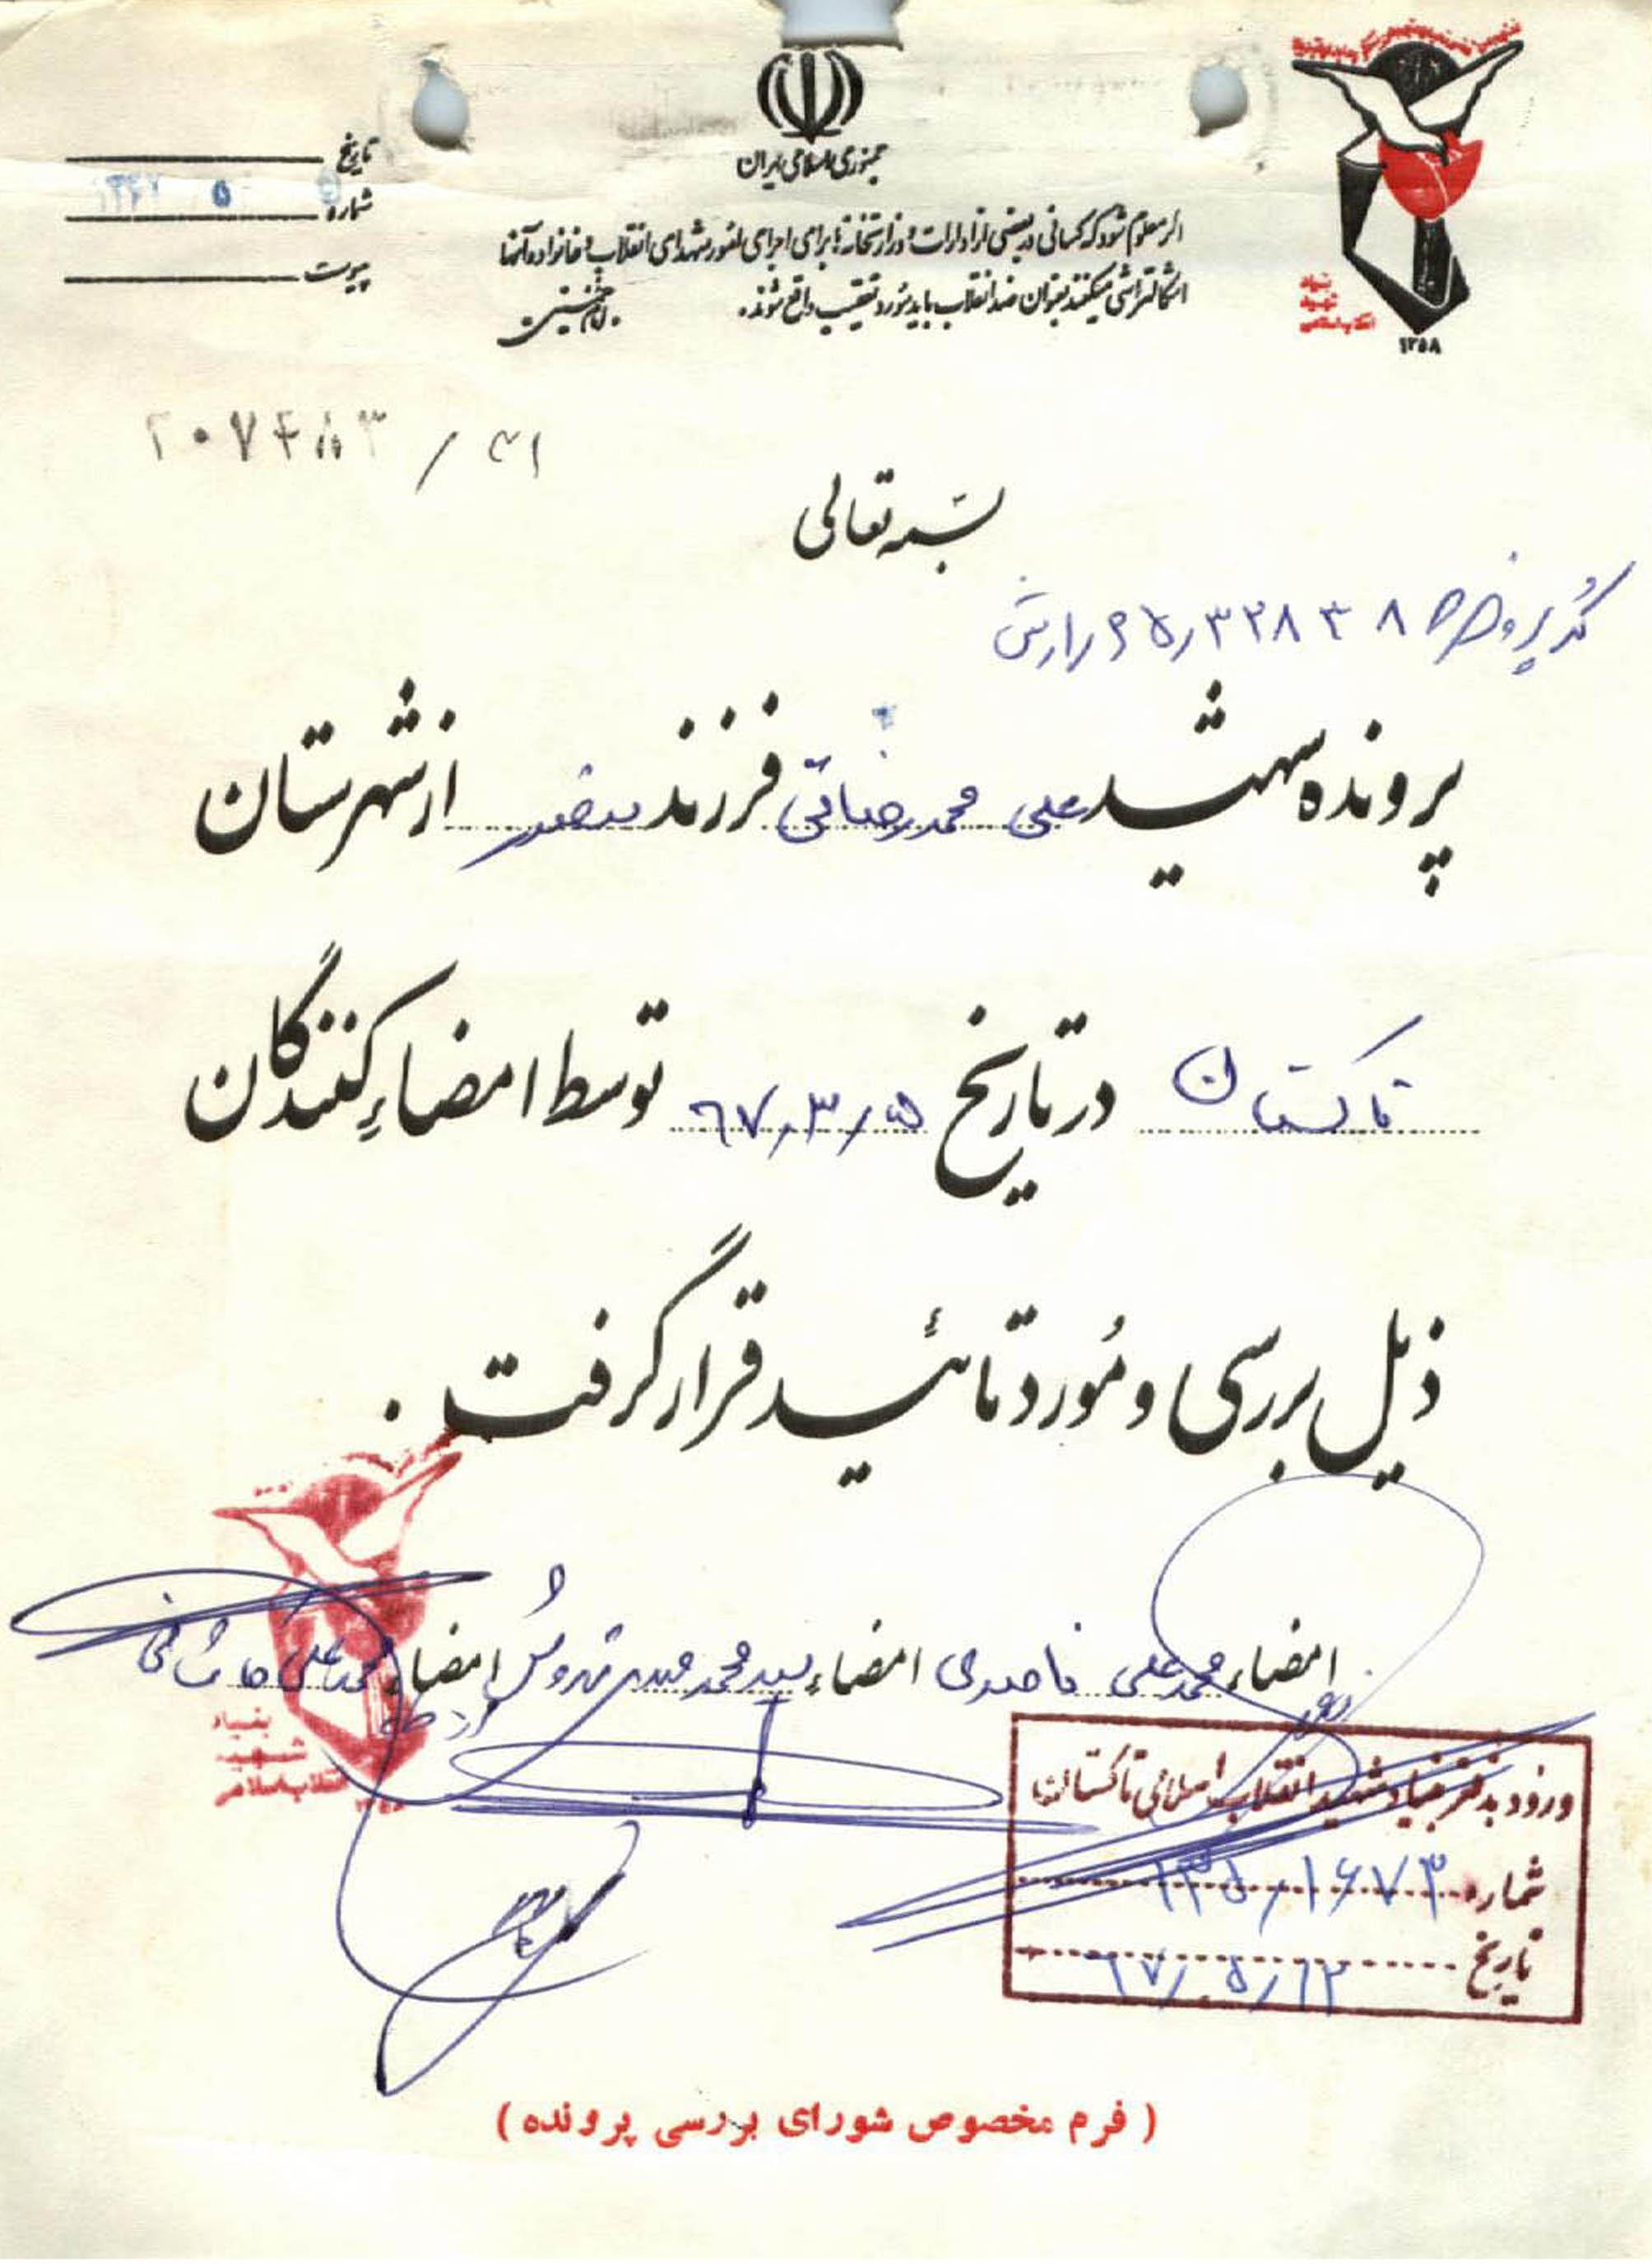 جمهوری اسلامی ایران
تاریخ
شماره
پیوست
اگر معلوم شود که کسانی در بعضی از ادارات و وزارتخانه‌ها برای اجرای امور شهدای انقلاب و خانواده آنها
اشکالتراشی میکنند بعنوان ضد انقلاب باید مورد تعقیب واقع شوند.
امام خمینی
بنیاد
شهید
انقلاب اسلامی
۱۳۵۸
۴۱ /
بسمه تعالی
کد پرونده
پرونده شهید علی محمدرضاقی فرزند از شهرستان
تاکستان در تاریخ ۶۷/۳/۵ توسط امضاء کنندگان
ذیل بررسی و مورد تائید قرار گرفت.
امضاء محمدعلی امضاء سید محمد امضاء محمدعلی
بنیاد
شهید
انقلاب اسلامی
ورود بدفتر بنیاد شهید انقلاب اسلامی تاکستان
شماره ۱۳۵/۱۶۷۳
تاریخ ۶۷/۵/۱۲
( فرم مخصوص شورای بررسی پرونده )